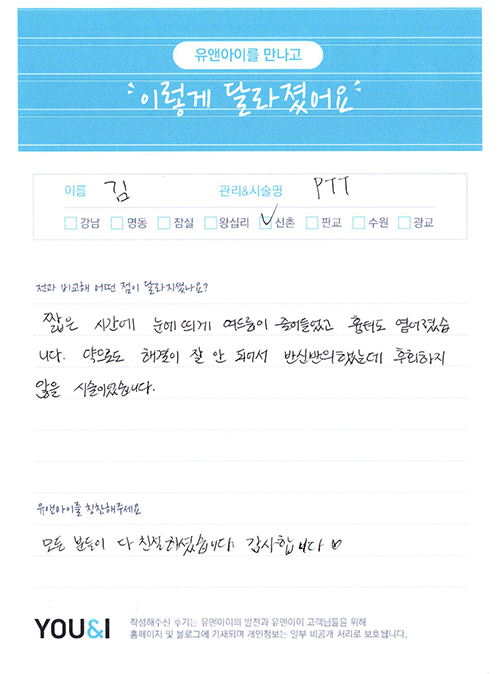 유앤아이를 만나고
이렇게 달라졌어요
이름 김 관리&시술명 PTT
강남 명동 잠실 왕십리 신촌 판교 수원 광교
전과 비교해 어떤 점이 달라지셨나요?
짧은 시간에 눈에 띄게 여드름이 줄어들었고 흉터도 옅어졌습
니다. 약으로도 해결이 잘 안 되어서 반신반의했는데 후회하지
않을 시술이었습니다.
유앤아이를 칭찬해주세요
모든 분들이 다 친절하셨습니다. 감사합니다 ♡
YOU&I 작성해주신 후기는 유앤아이의 발전과 유앤아이 고객님들을 위해
홈페이지 및 블로그에 기재되며 개인정보는 일부 비공개 처리로 보호됩니다.